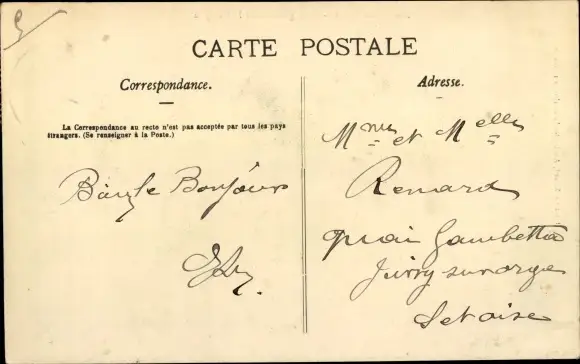 CARTE POSTALE
Correspondance.
La Correspondance au recto n'est pas acceptée par tous les pays
étrangers. (Se renseigner à la Poste.)
Bonjour
Adresse.
Mmes et Melles
Renard
quai Gambetta
Juvisy sur orge
Set oise